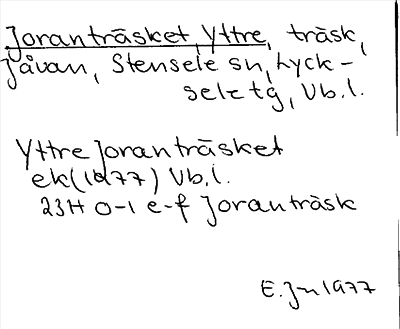 Joranträsket, Yttre, träsk,
Jåvan, Stensele sn, Lyck-
sele tg, Vb.l.
Yttre Joranträsket
ek (1977) Vb.l.
23H 0-1 e-f Joranträsk
E. Jn 1977